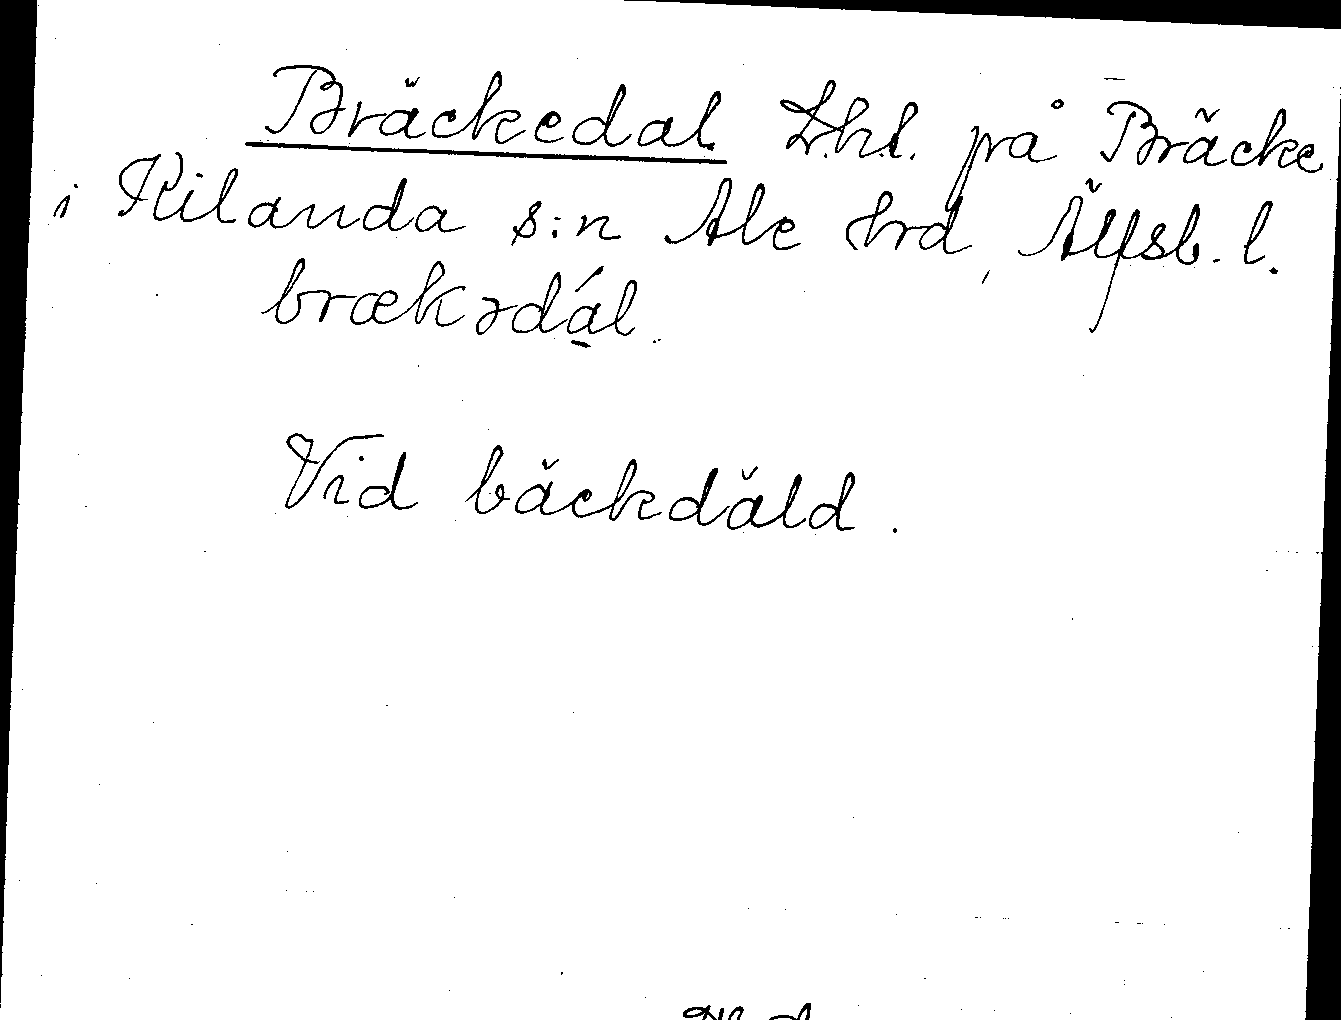 Bräckedal. Lht. på Bräcke
i Kilanda s:n Ale hrd, Älfsb. l.
brækədá̱l.
Vid bäckdäld.